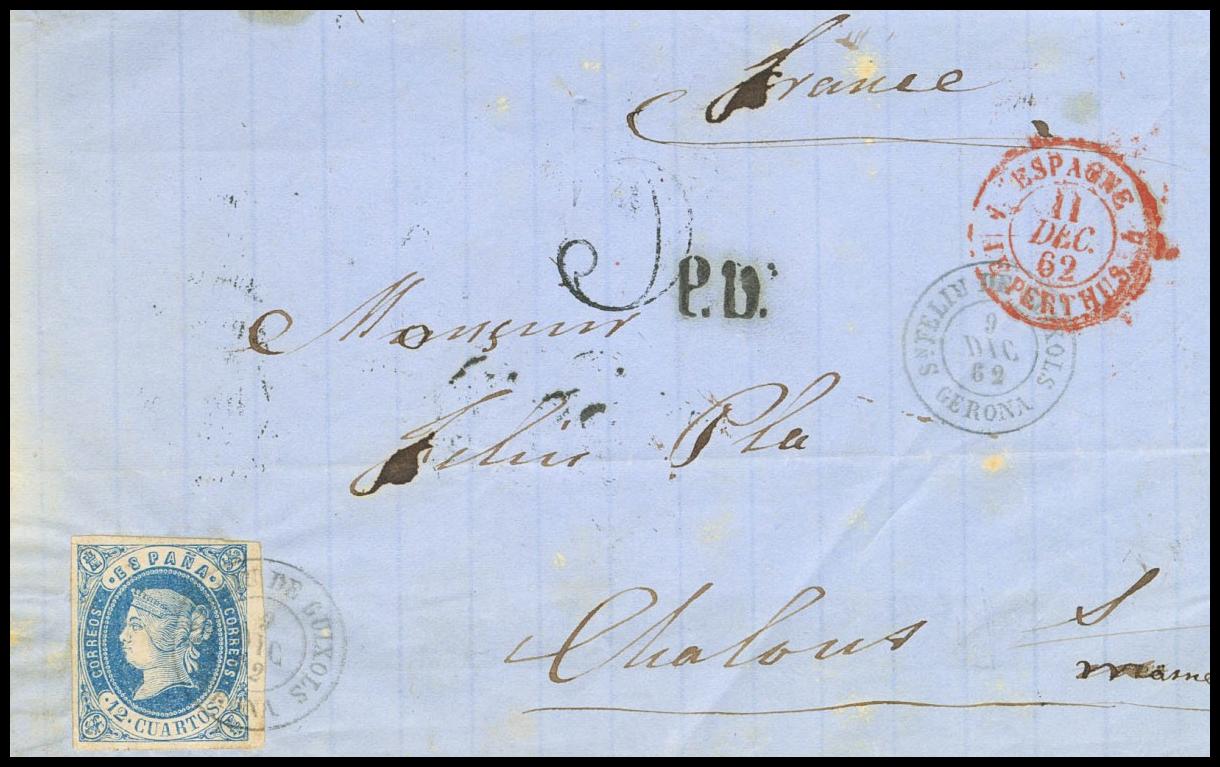 France
ESPAGNE
11
DEC.
62
PERTHUS
P.D.
Sn FELIU DE
9
DIC
62
GERONA
Monsieur
Feliu Pla
Chalons S
marne
ESPAÑA
CORREOS
CORREOS
12 CUARTOS
DE GUIXOLS